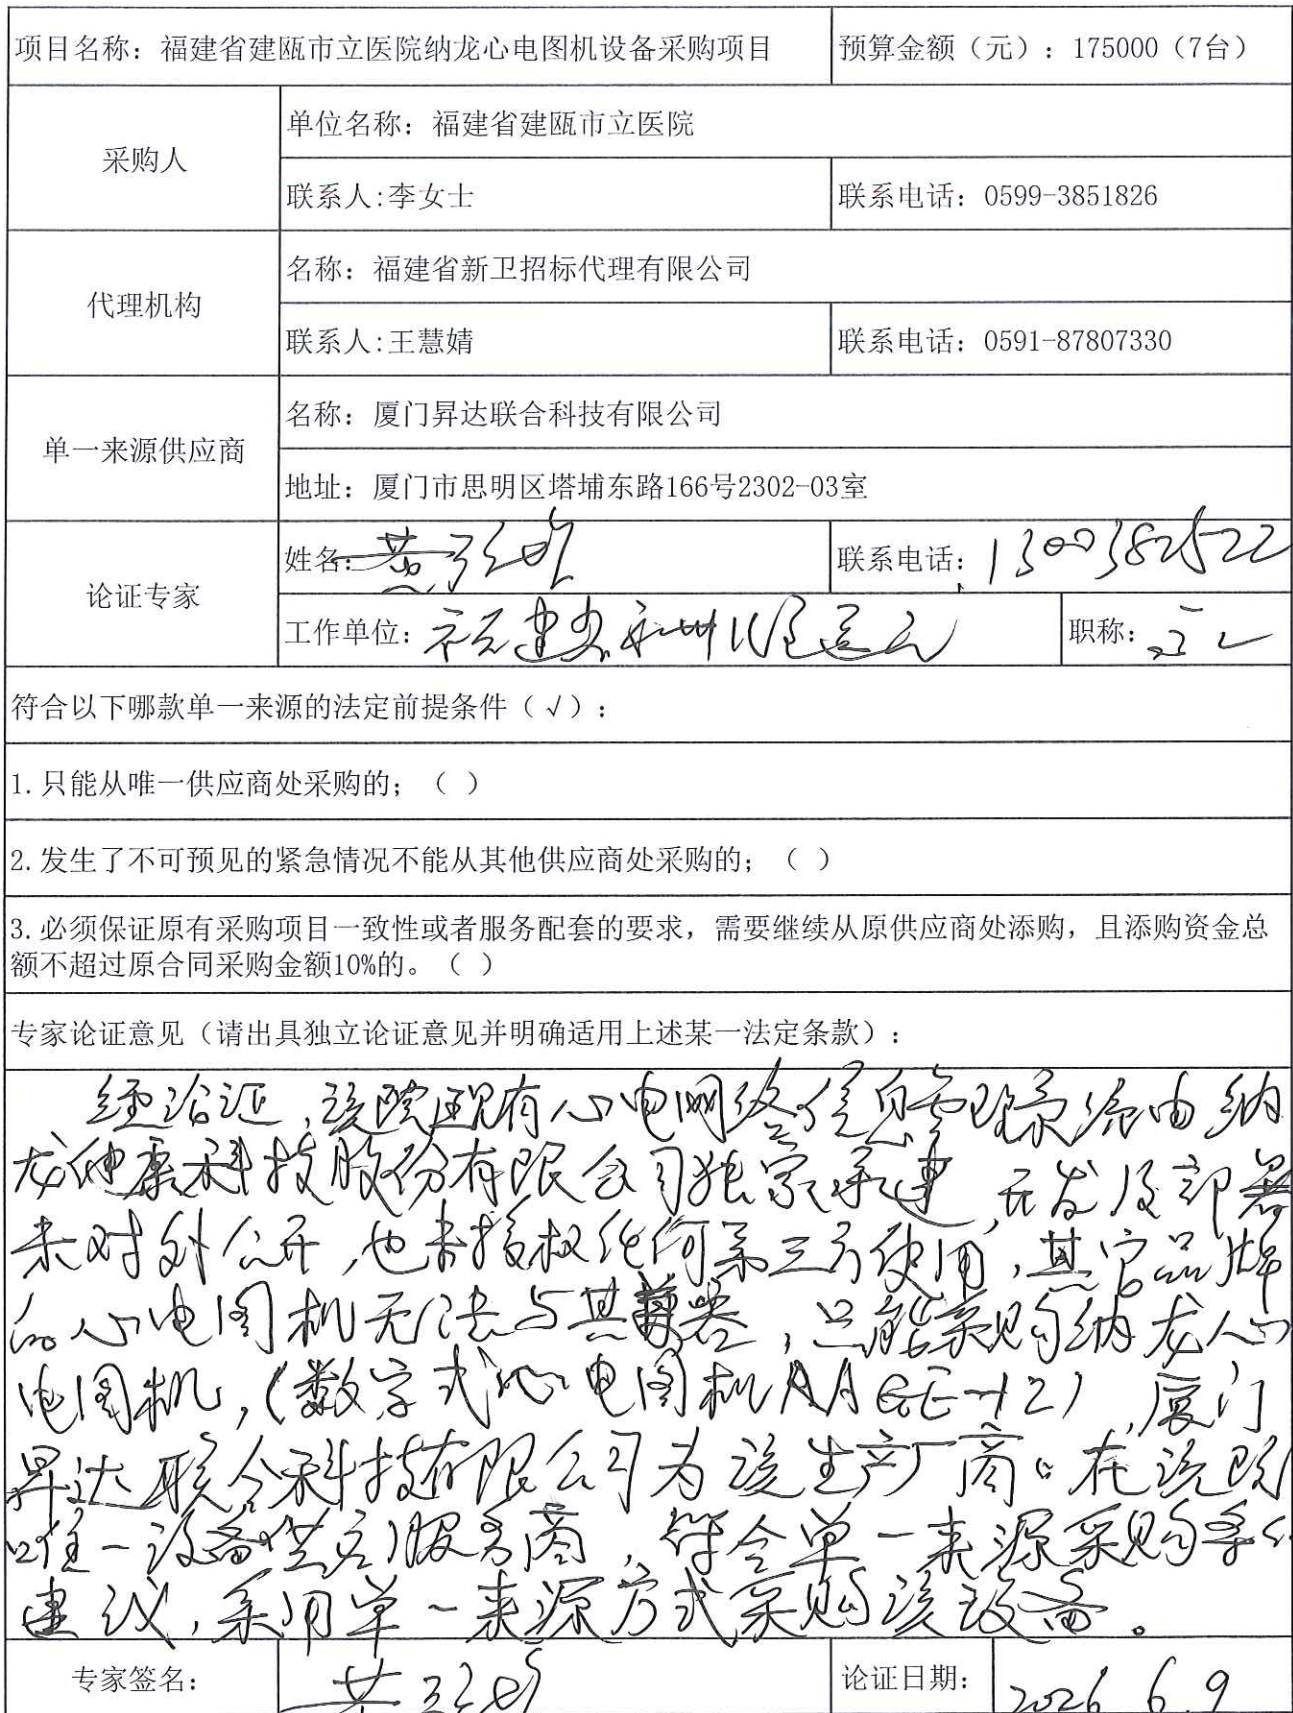 项目名称：福建省建瓯市立医院纳龙心电图机设备采购项目 预算金额（元）：175000（7台）
采购人
单位名称：福建省建瓯市立医院
联系人:李女士 联系电话：0599-3851826
代理机构
名称：福建省新卫招标代理有限公司
联系人:王慧婧 联系电话：0591-87807330
单一来源供应商
名称：厦门昇达联合科技有限公司
地址：厦门市思明区塔埔东路166号2302-03室
论证专家
姓名：黄 联系电话：13003825522
工作单位：福建省 职称：
符合以下哪款单一来源的法定前提条件（√）：
1.只能从唯一供应商处采购的；（ ）
2.发生了不可预见的紧急情况不能从其他供应商处采购的；（ ）
3.必须保证原有采购项目一致性或者服务配套的要求，需要继续从原供应商处添购，且添购资金总
额不超过原合同采购金额10%的。（ ）
专家论证意见（请出具独立论证意见并明确适用上述某一法定条款）：
经论证，该院现有心电网络信息管理系统由纳
龙健康科技股份有限公司独家承建，开发及部署
未对外公开，也未授权任何第三方使用，其它品牌
的心电图机无法与其兼容，只能采购纳龙心
电图机，（数字式心电图机 -12），厦门
昇达联合科技有限公司为该生产厂商。在该院
唯一设备供应服务商，符合单一来源采购条件
建议，采用单一来源方式采购该设备。
专家签名： 黄 论证日期：2026.6.9